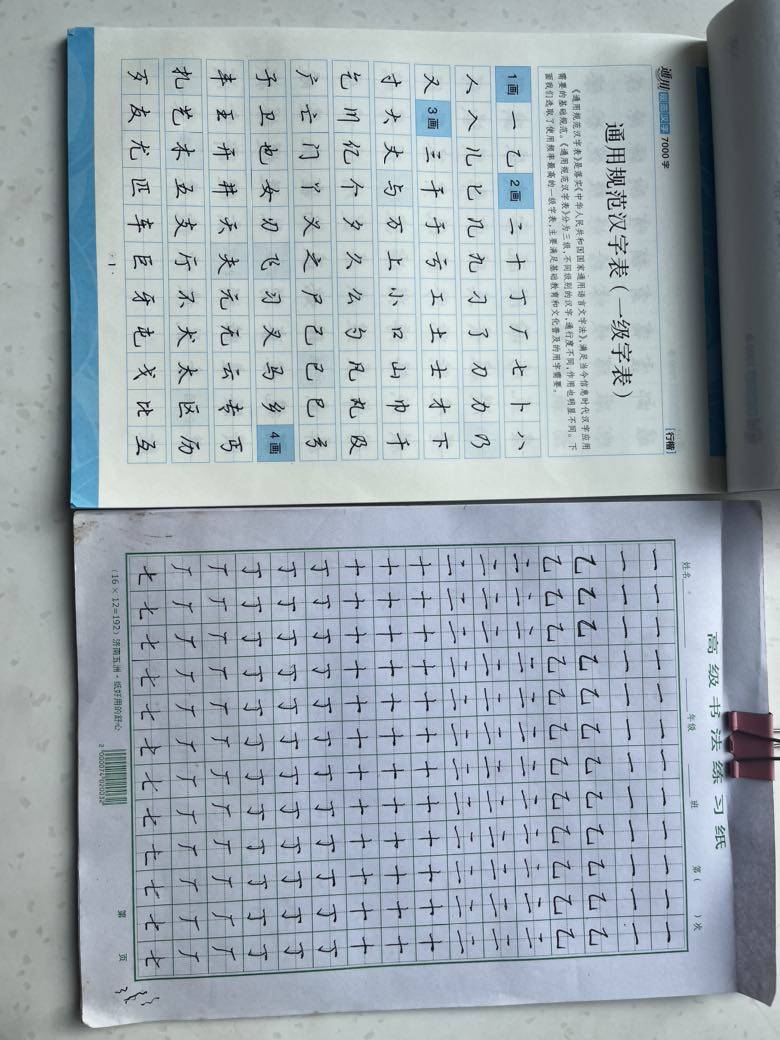 通用规范汉字7000字
[行楷]
通用规范汉字表(一级字表)
《通用规范汉字表》是落实《中华人民共和国国家通用语言文字法》,满足当今信息时代汉字应用
需要的基础规范。《通用规范汉字表》分为三级,不同级别的汉字,通行度不同,作用也明显不同。下
面我们选取了使用频率最高的一级字表,主要满足基础教育和文化普及的用字需要。
1画 一 乙 2画 二 十 丁 厂 七 卜 八
人 入 儿 匕 几 九 刁 了 刀 力 乃
又 3画 三 干 于 亏 工 土 士 才 下
寸 大 丈 与 万 上 小 口 山 巾 千
乞 川 亿 个 夕 久 么 勺 凡 丸 及
广 亡 门 丫 义 之 尸 己 已 巳 弓
子 卫 也 女 刃 飞 习 叉 马 乡 4画
丰 王 开 井 天 夫 元 无 云 专 丐
扎 艺 木 五 支 厅 不 犬 太 区 历
歹 友 尤 匹 车 巨 牙 屯 戈 比 互
·1·
高级书法练习纸
姓名 年级 班 第( )次
一 一 一 一 一 一 一 一 一 一 一 一
一 一 一 一 一 一 一 一 一 一 一 一
乙 乙 乙 乙 乙 乙 乙 乙 乙 乙 乙 乙
乙 乙 乙 乙 乙 乙 乙 乙 乙 乙 乙 乙
二 二 二 二 二 二 二 二 二 二 二 二
二 二 二 二 二 二 二 二 二 二 二 二
二 二 二 二 二 二 二 二 二 二 二 二
十 十 十 十 十 十 十 十 十 十 十 十
十 十 十 十 十 十 十 十 十 十 十 十
十 十 十 十 十 十 十 十 十 十 十 十
丁 丁 丁 丁 丁 丁 丁 丁 丁 丁 丁 丁
丁 丁 丁 丁 丁 丁 丁 丁 丁 丁 丁 丁
丁 丁 丁 丁 丁 丁 丁 丁 丁 丁 丁 丁
厂 厂 厂 厂 厂 厂 厂 厂 厂 厂 厂 厂
厂 厂 厂 厂 厂 厂 厂 厂 厂 厂 厂 厂
七 七 七 七 七 七 七 七 七 七 七 七
(16×12=192)济南五洲·纸好用的舒心
第 页